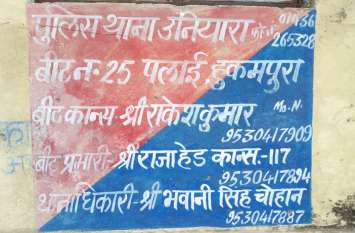 पुलिस थाना उनियारा फो.नं. 01436
265328
बीट न.-25 पलाई, हुकमपुरा
बीट कान्स श्री राकेश कुमार Mo.N.
9530417909
बीट प्रभारी- श्री राजा हेड कान्स.-117
9530417894
थानाधिकारी-श्री भवानी सिंह चौहान
9530417887